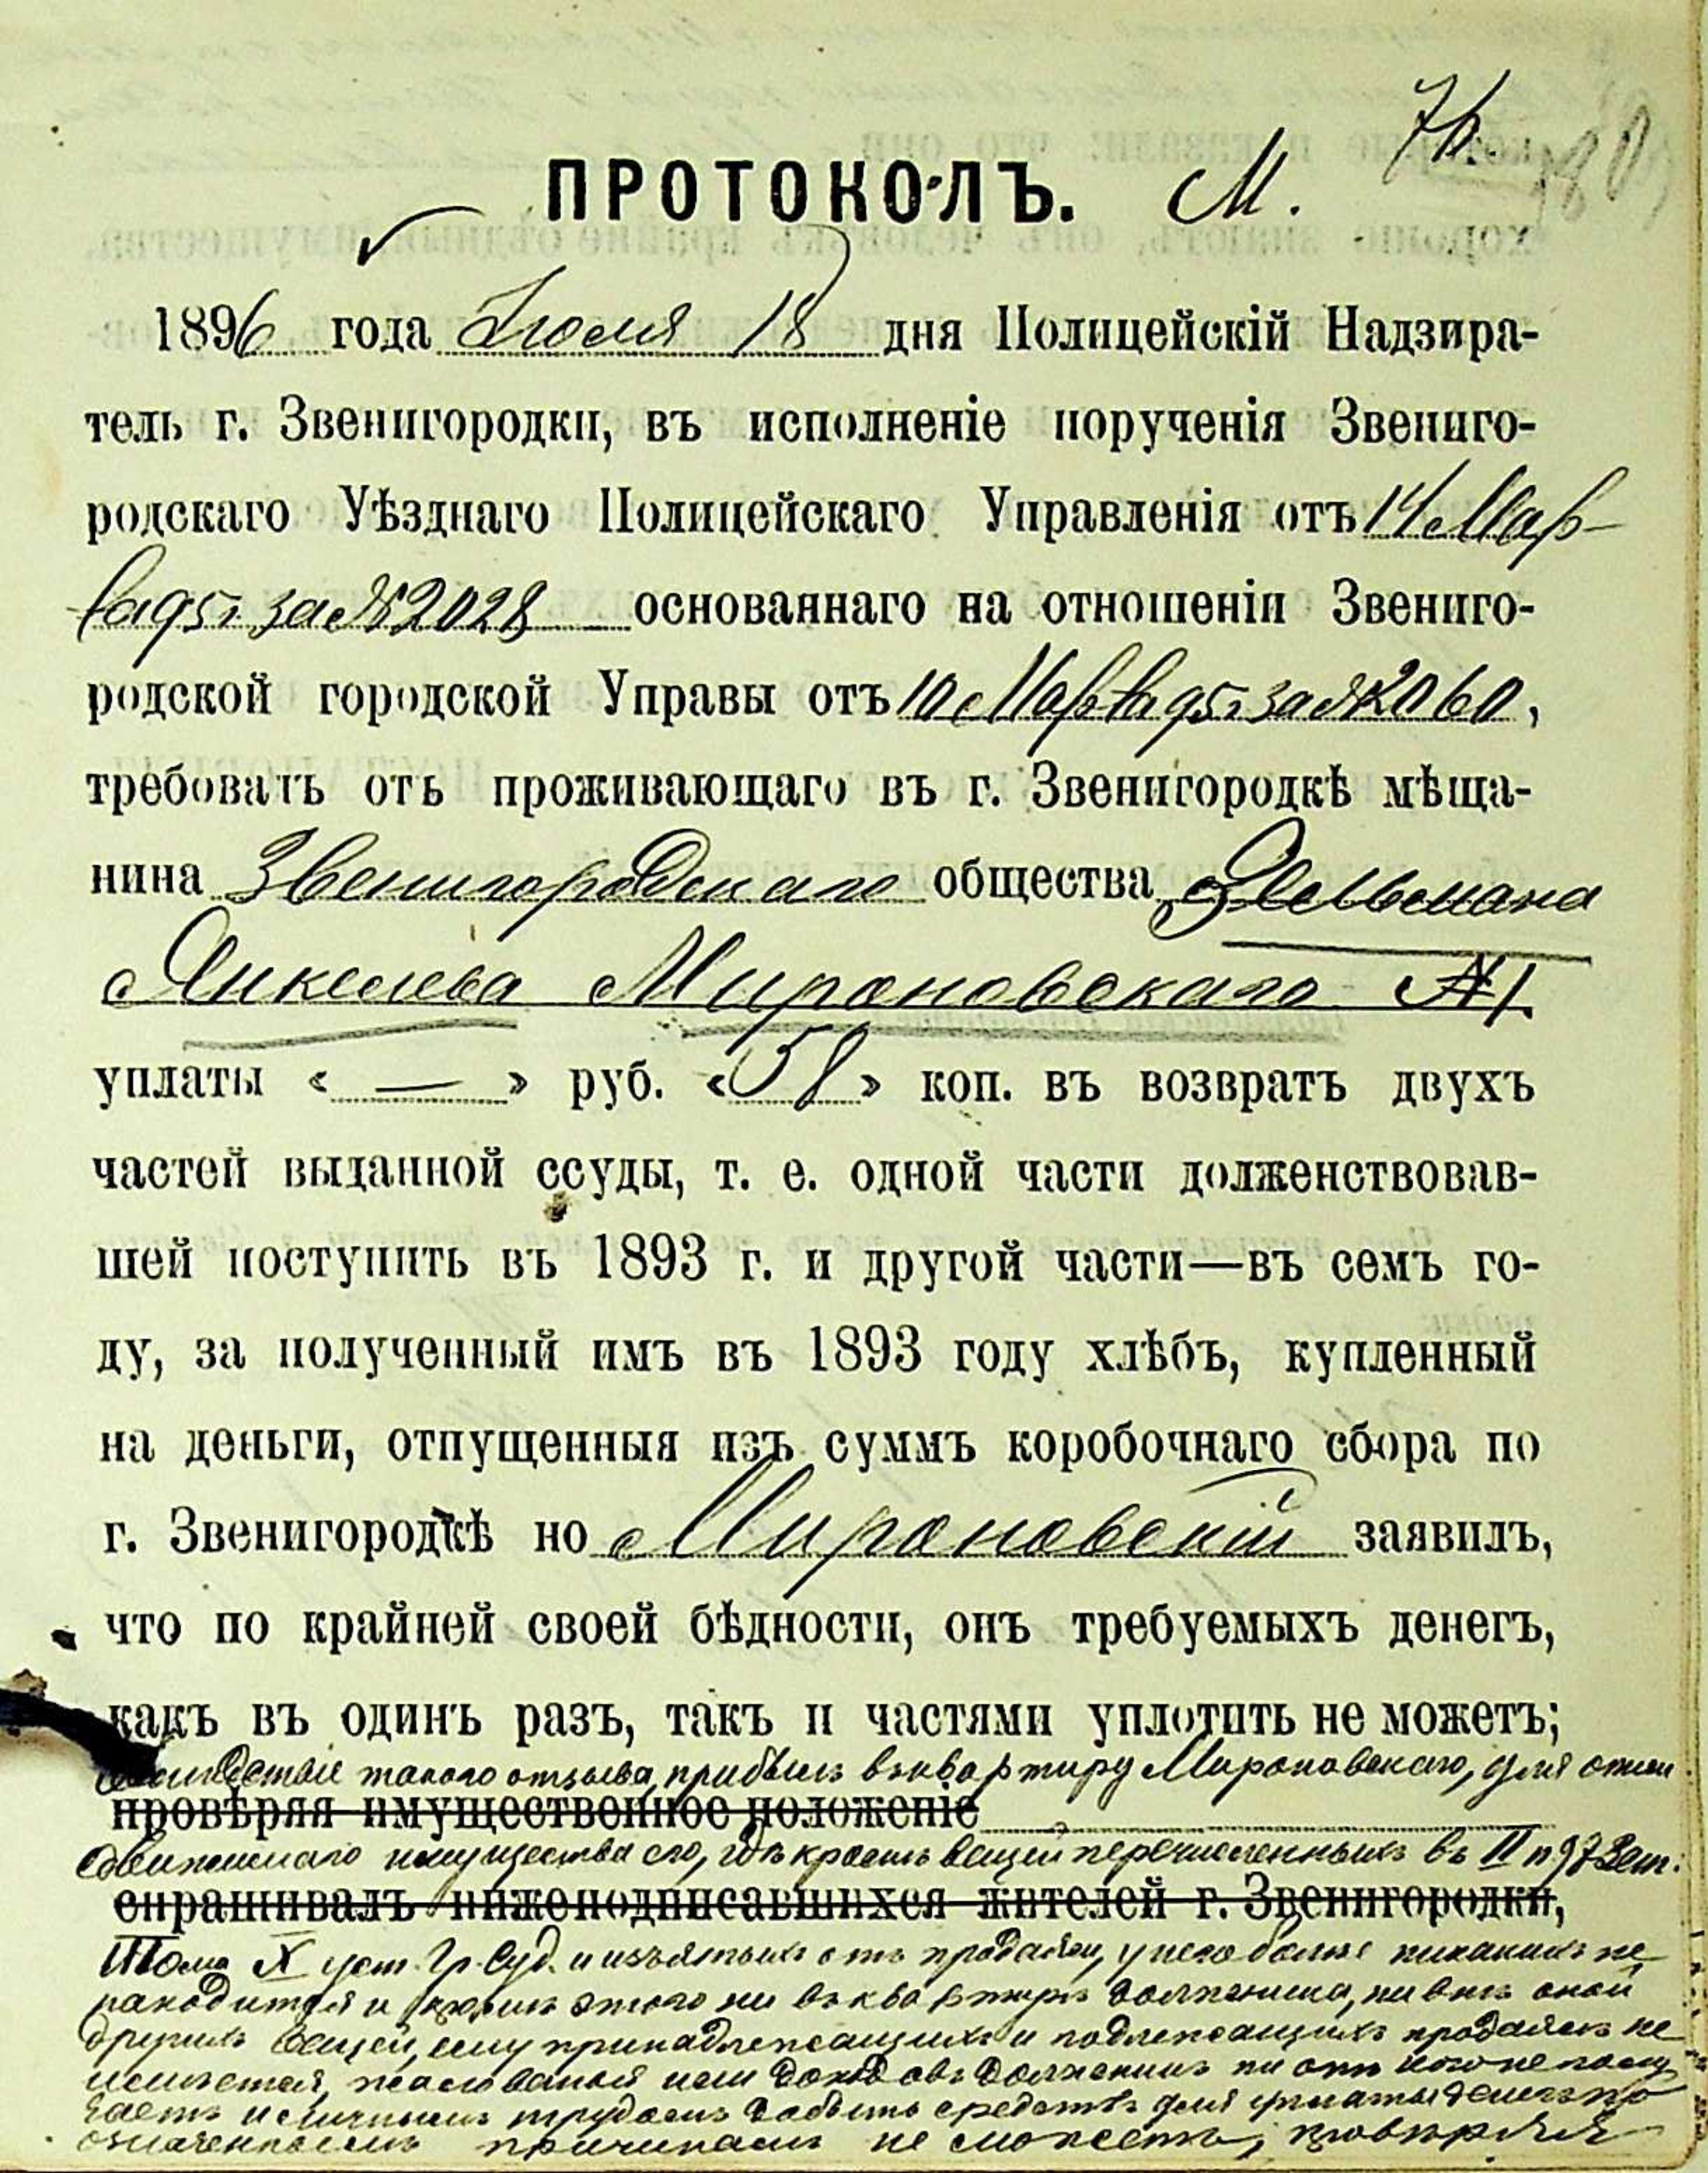 76.
ПРОТОКОЛЪ. М.
1896 года Іюля 18 дня Полицейскій Надзира-
тель г. Звенигородки, въ исполненіе порученія Звениго-
родскаго Уѣзднаго Полицейскаго Управленія отъ 14 Мар-
та 95 г. за № 2028 основаннаго на отношеніи Звениго-
родской городской Управы отъ 10 Марта 95 г. за № 2060,
требовать отъ проживающаго въ г. Звенигородкѣ мѣща-
нина Звенигородскаго общества Зельмана
Янкелева Мироновскаго
уплаты « — » руб. « 58 » коп. въ возвратъ двухъ
частей выданной ссуды, т. е. одной части долженствовав-
шей поступить въ 1893 г. и другой части—въ семъ го-
ду, за полученный имъ въ 1893 году хлѣбъ, купленный
на деньги, отпущенныя изъ суммъ коробочнаго сбора по
г. Звенигородкѣ но Мироновскій заявилъ,
что по крайней своей бѣдности, онъ требуемыхъ денегъ,
какъ въ одинъ разъ, такъ и частями уплотить не можетъ;
вслѣдствіе такого отзыва, прибылъ въ квартиру Мироновскаго, для описи
провѣряя имущественное положеніе
движимаго имущества его, гдѣ кромѣ вещей перечисленныхъ въ II п 973 ст.
спрашивалъ нижеподписавшихся жителей г. Звенигородки,
Тома X уст. Гр. Суд. и изъятыхъ отъ продажи, у него болѣе никакихъ не
находится и кромѣ этого ни въ квартирѣ должника, ни внѣ оной
другихъ вещей, ему принадлежащихъ и подлежащихъ продажѣ не
имѣется, жалованья или доходовъ должникъ ни отъ кого не полу
чаетъ и личнымъ трудомъ добыть средствъ для уплаты денегъ по
означеннымъ причинамъ не можетъ, провѣряя